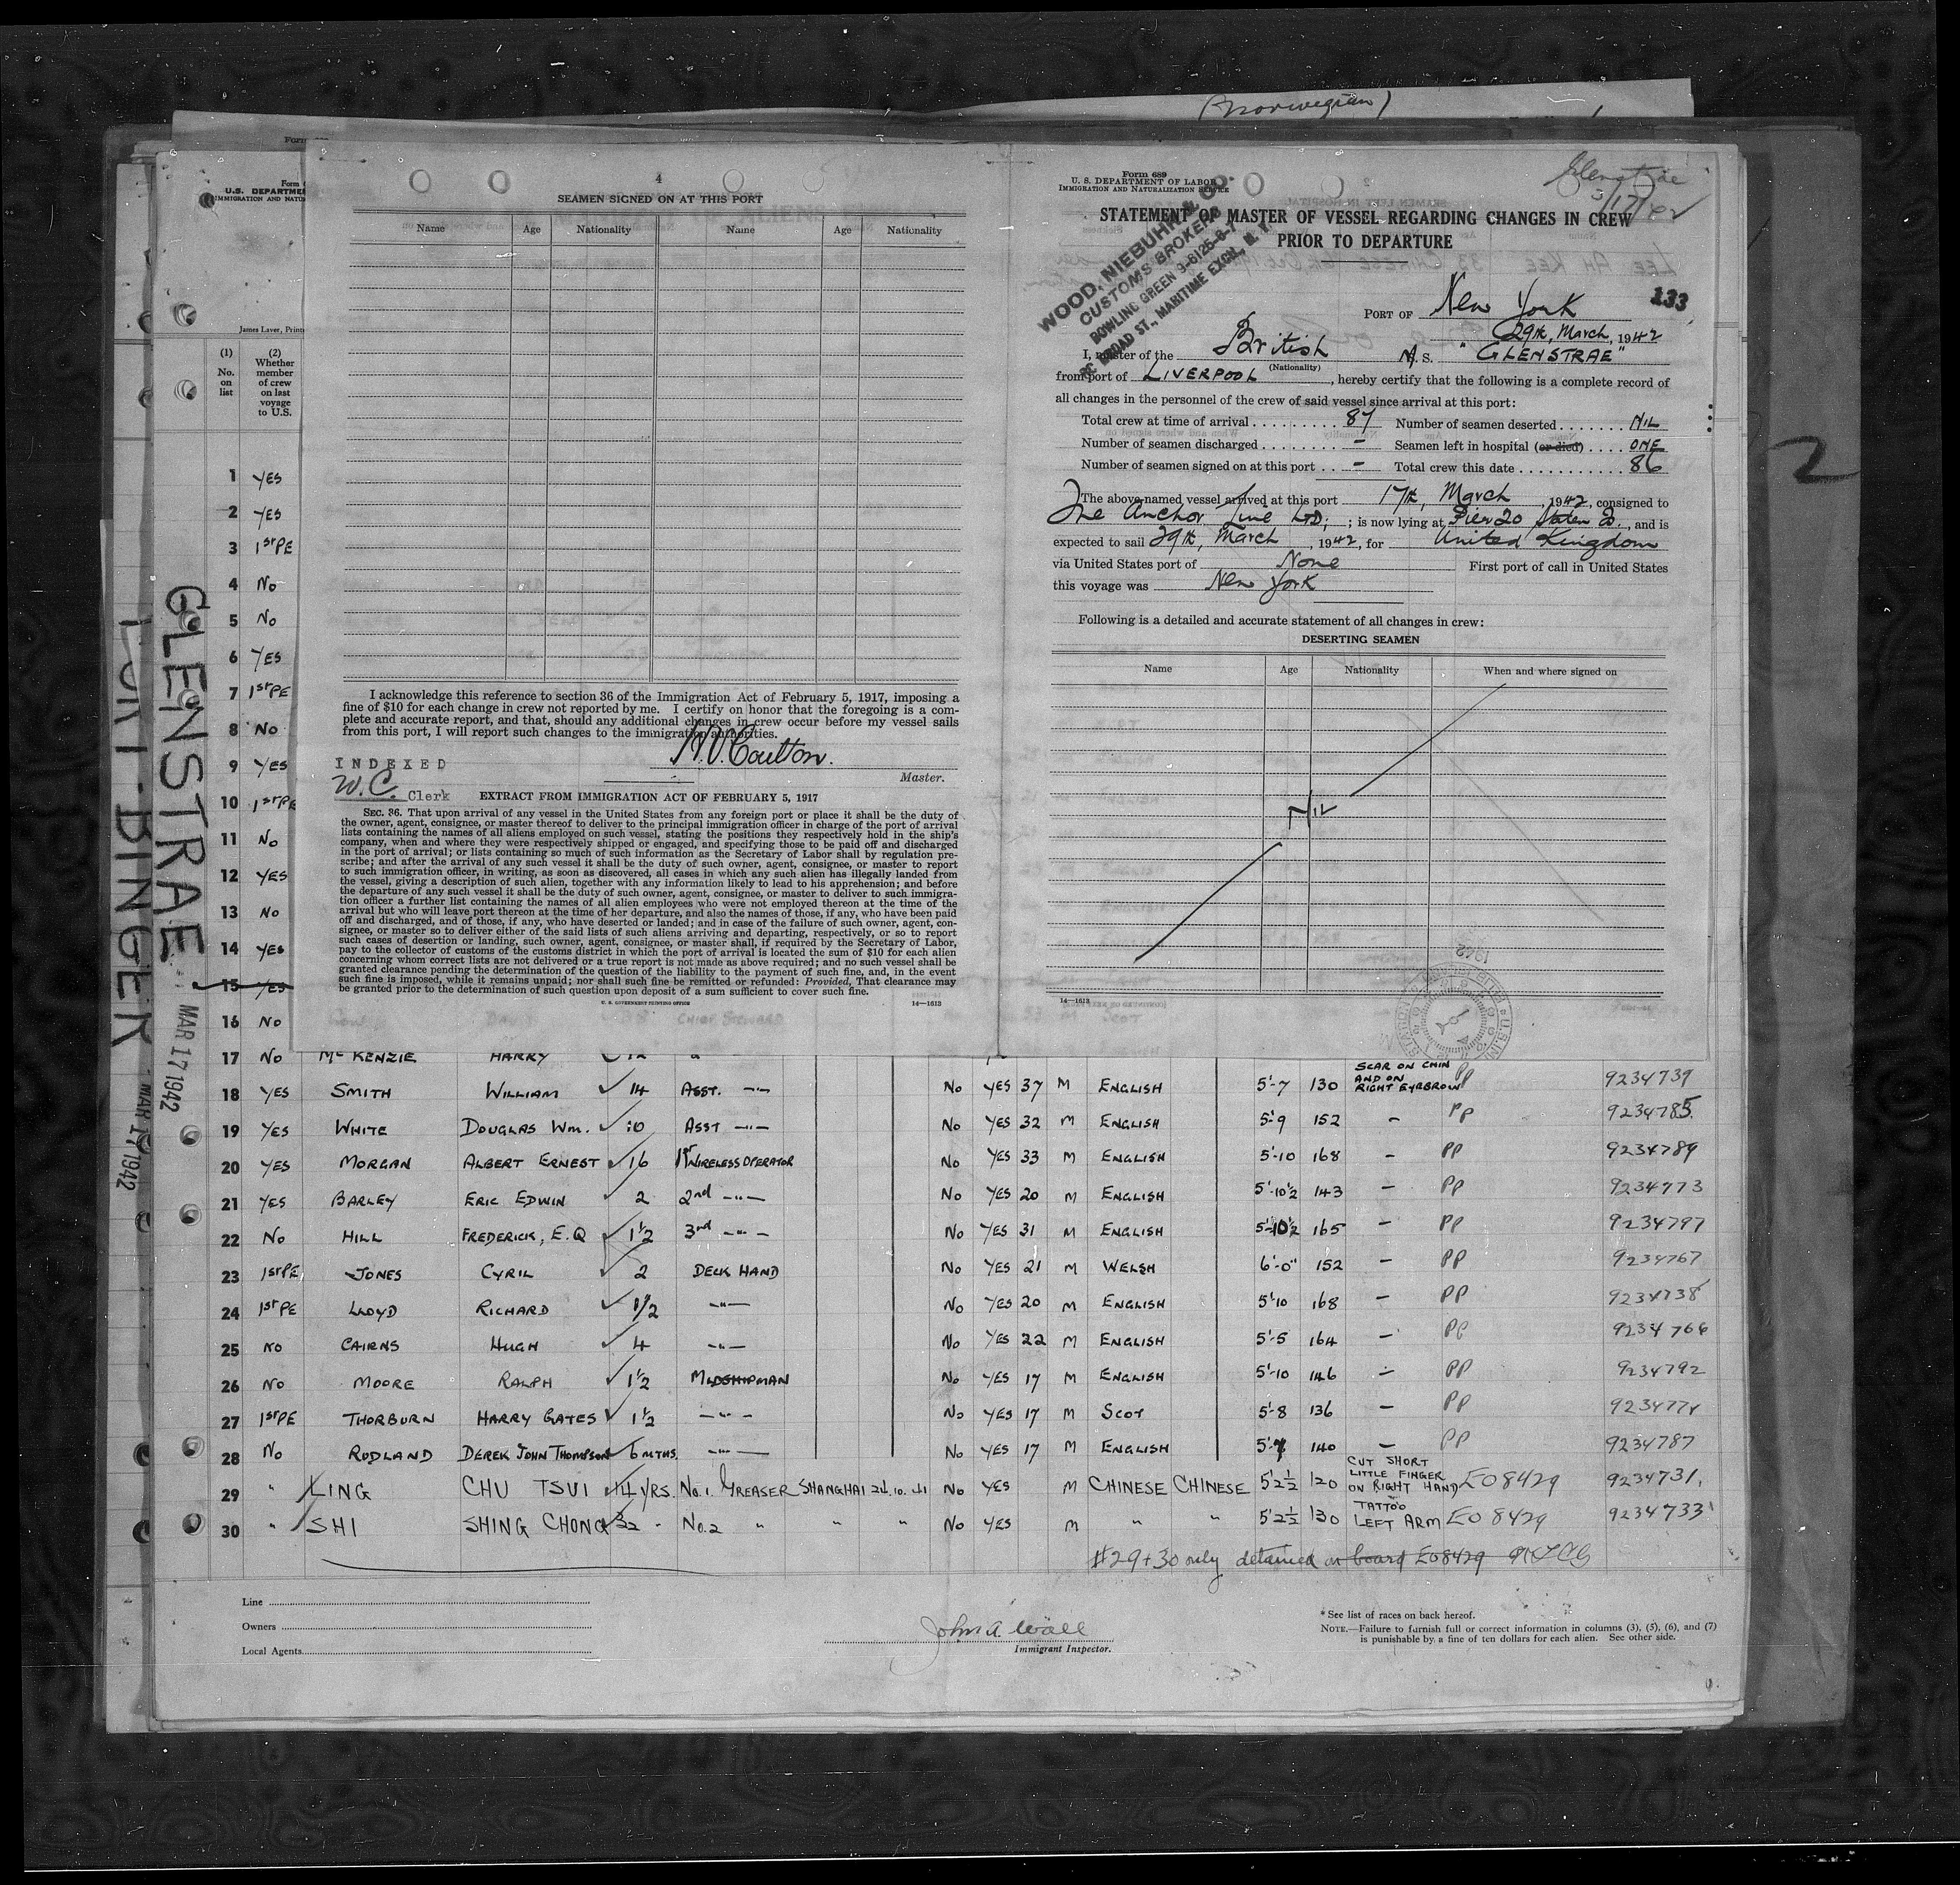 (Norwegian)
Form
U.S. DEPARTME
IMMIGRATION AND NATUR
James Laver, Printe
(1) No. on list
(2) Whether member of crew on last voyage to U.S.
4
SEAMEN SIGNED ON AT THIS PORT
Name Age Nationality Name Age Nationality
I acknowledge this reference to section 36 of the Immigration Act of February 5, 1917, imposing a
fine of $10 for each change in crew not reported by me. I certify on honor that the foregoing is a com-
plete and accurate report, and that, should any additional changes in crew occur before my vessel sails
from this port, I will report such changes to the immigration authorities.
Coulton.
Master.
INDEXED
W.C. Clerk
EXTRACT FROM IMMIGRATION ACT OF FEBRUARY 5, 1917
SEC. 36. That upon arrival of any vessel in the United States from any foreign port or place it shall be the duty of
the owner, agent, consignee, or master thereof to deliver to the principal immigration officer in charge of the port of arrival
lists containing the names of all aliens employed on such vessel, stating the positions they respectively hold in the ship's
company, when and where they were respectively shipped or engaged, and specifying those to be paid off and discharged
in the port of arrival; or lists containing so much of such information as the Secretary of Labor shall by regulation pre-
scribe; and after the arrival of any such vessel it shall be the duty of such owner, agent, consignee, or master to report
to such immigration officer, in writing, as soon as discovered, all cases in which any such alien has illegally landed from
the vessel, giving a description of such alien, together with any information likely to lead to his apprehension; and before
the departure of any such vessel it shall be the duty of such owner, agent, consignee, or master to deliver to such immigra-
tion officer a further list containing the names of all alien employees who were not employed thereon at the time of the
arrival but who will leave port thereon at the time of her departure, and also the names of those, if any, who have been paid
off and discharged, and of those, if any, who have deserted or landed; and in case of the failure of such owner, agent, con-
signee, or master so to deliver either of the said lists of such aliens arriving and departing, respectively, or so to report
such cases of desertion or landing, such owner, agent, consignee, or master shall, if required by the Secretary of Labor,
pay to the collector of customs of the customs district in which the port of arrival is located the sum of $10 for each alien
concerning whom correct lists are not delivered or a true report is not made as above required; and no such vessel shall be
granted clearance pending the determination of the question of the liability to the payment of such fine, and, in the event
such fine is imposed, while it remains unpaid; nor shall such fine be remitted or refunded: Provided, That clearance may
be granted prior to the determination of such question upon deposit of a sum sufficient to cover such fine.
U. S. GOVERNMENT PRINTING OFFICE 14—1613
Form 689
U. S. DEPARTMENT OF LABOR
IMMIGRATION AND NATURALIZATION SERVICE
Glenstrae
3/17/42
WOOD, NIEBUHR & CO.
CUSTOMS BROKERS
BOWLING GREEN 9-8125-6-7
BROAD ST., MARITIME EXCH., N. Y.
STATEMENT OF MASTER OF VESSEL REGARDING CHANGES IN CREW
PRIOR TO DEPARTURE
133
PORT OF New York
29th, March, 1942
I, master of the British M.S. "GLENSTRAE"
(Nationality)
from port of LIVERPOOL, hereby certify that the following is a complete record of
all changes in the personnel of the crew of said vessel since arrival at this port:
Total crew at time of arrival 87 Number of seamen deserted NIL
Number of seamen discharged - Seamen left in hospital (or died) ONE
Number of seamen signed on at this port - Total crew this date 86
The above-named vessel arrived at this port 17th, March, 1942, consigned to
The Anchor Line LTD; ; is now lying at Pier 20 Staten Is., and is
expected to sail 29th, March, 1942, for United Kingdom
via United States port of None First port of call in United States
this voyage was New York
Following is a detailed and accurate statement of all changes in crew:
DESERTING SEAMEN
Name Age Nationality When and where signed on
NIL
14—1613
2
GLENSTRAE
MAR 17 1942
BINGER
MAR 17 1942
1 YES
2 YES
3 1st PE
4 No
5 No
6 YES
7 1st PE
8 No
9 YES
10 1st PE
11 No
12 YES
13 No
14 YES
15 YES
16 No
17 No McKENZIE HARRY
18 YES SMITH WILLIAM 14 ASST. -"- No YES 37 M ENGLISH 5'-7 130 SCAR ON CHIN AND ON RIGHT EYEBROW PP 9234739
19 YES WHITE DOUGLAS Wm. 10 ASST -"- No YES 32 M ENGLISH 5'9 152 - PP 9234785
20 YES MORGAN ALBERT ERNEST 16 1st WIRELESS OPERATOR No YES 33 M ENGLISH 5'-10 168 - PP 9234789
21 YES BARLEY ERIC EDWIN 2 2nd -"- No YES 20 M ENGLISH 5'-10½ 143 - PP 9234773
22 No HILL FREDERICK, E.Q 1½ 3rd -"- No YES 31 M ENGLISH 5'-10½ 165 - PP 9234797
23 1st PE JONES CYRIL 2 DECK HAND No YES 21 M WELSH 6'-0" 152 - PP 9234767
24 1st PE LLOYD RICHARD 1½ -"- No YES 20 M ENGLISH 5'10 168 - PP 9234738
25 No CAIRNS HUGH 4 -"- No YES 22 M ENGLISH 5'-5 164 - PP 9234766
26 No MOORE RALPH 1½ MIDSHIPMAN No YES 17 M ENGLISH 5'-10 146 - PP 9234792
27 1st PE THORBURN HARRY GATES 1½ -"- No YES 17 M SCOT 5'-8 136 - PP 9234774
28 No RUDLAND DEREK JOHN THOMPSON 6 MTHS. -"- No YES 17 M ENGLISH 5'-7 140 - PP 9234787
29 " LING CHU TSUI 14 YRS. No.1. GREASER SHANGHAI 24.10.41 No YES M CHINESE CHINESE 5'2½ 120 CUT SHORT LITTLE FINGER ON RIGHT HAND EO8429 9234731
30 " SHI SHING CHONG 32 " No.2 " " " No YES M " " 5'2½ 130 TATTOO LEFT ARM EO8429 9234733
#29+30 only detained on board EO8429
Line
Owners
Local Agents
John A. Wall
Immigrant Inspector.
*See list of races on back hereof.
NOTE.—Failure to furnish full or correct information in columns (3), (5), (6), and (7)
is punishable by a fine of ten dollars for each alien. See other side.